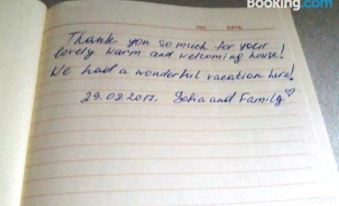 Booking.com
NO. DATE
Thank you so much for your
lovely warm and welcoming house!
We had a wonderful vacation here!
29.08.2017. Sofia and Family♡